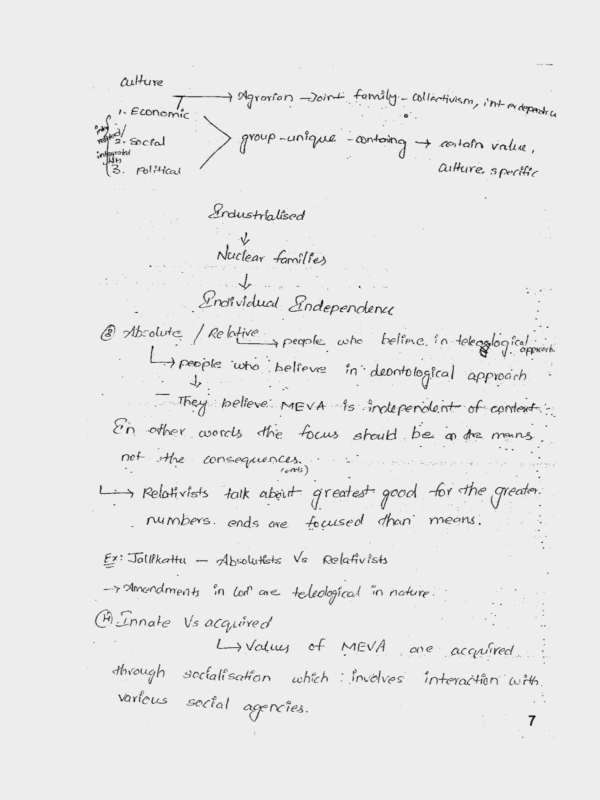 Culture
→ Agrarian → Joint family - collectivism, interdependence
1. Economic
2. Social
3. Political
integrated with
group - unique - containing → certain value,
culture specific
Industrialised
↓
Nuclear families
↓
Individual Independence
③ Absolute / Relative
→ people who believe in teleological approach
→ people who believe in deontological approach
↓
- They believe MEVA is independent of context.
In other words the focus should be on the means
not the consequences.
(ends)
→ Relativists talk about greatest good for the greater
numbers. ends are focused than means.
Ex: Jallikattu - Absolutists Vs Relativists
→ Amendments in law are teleological in nature.
④ Innate Vs acquired
→ Values of MEVA are acquired
through socialisation which involves interaction with
various social agencies.
7